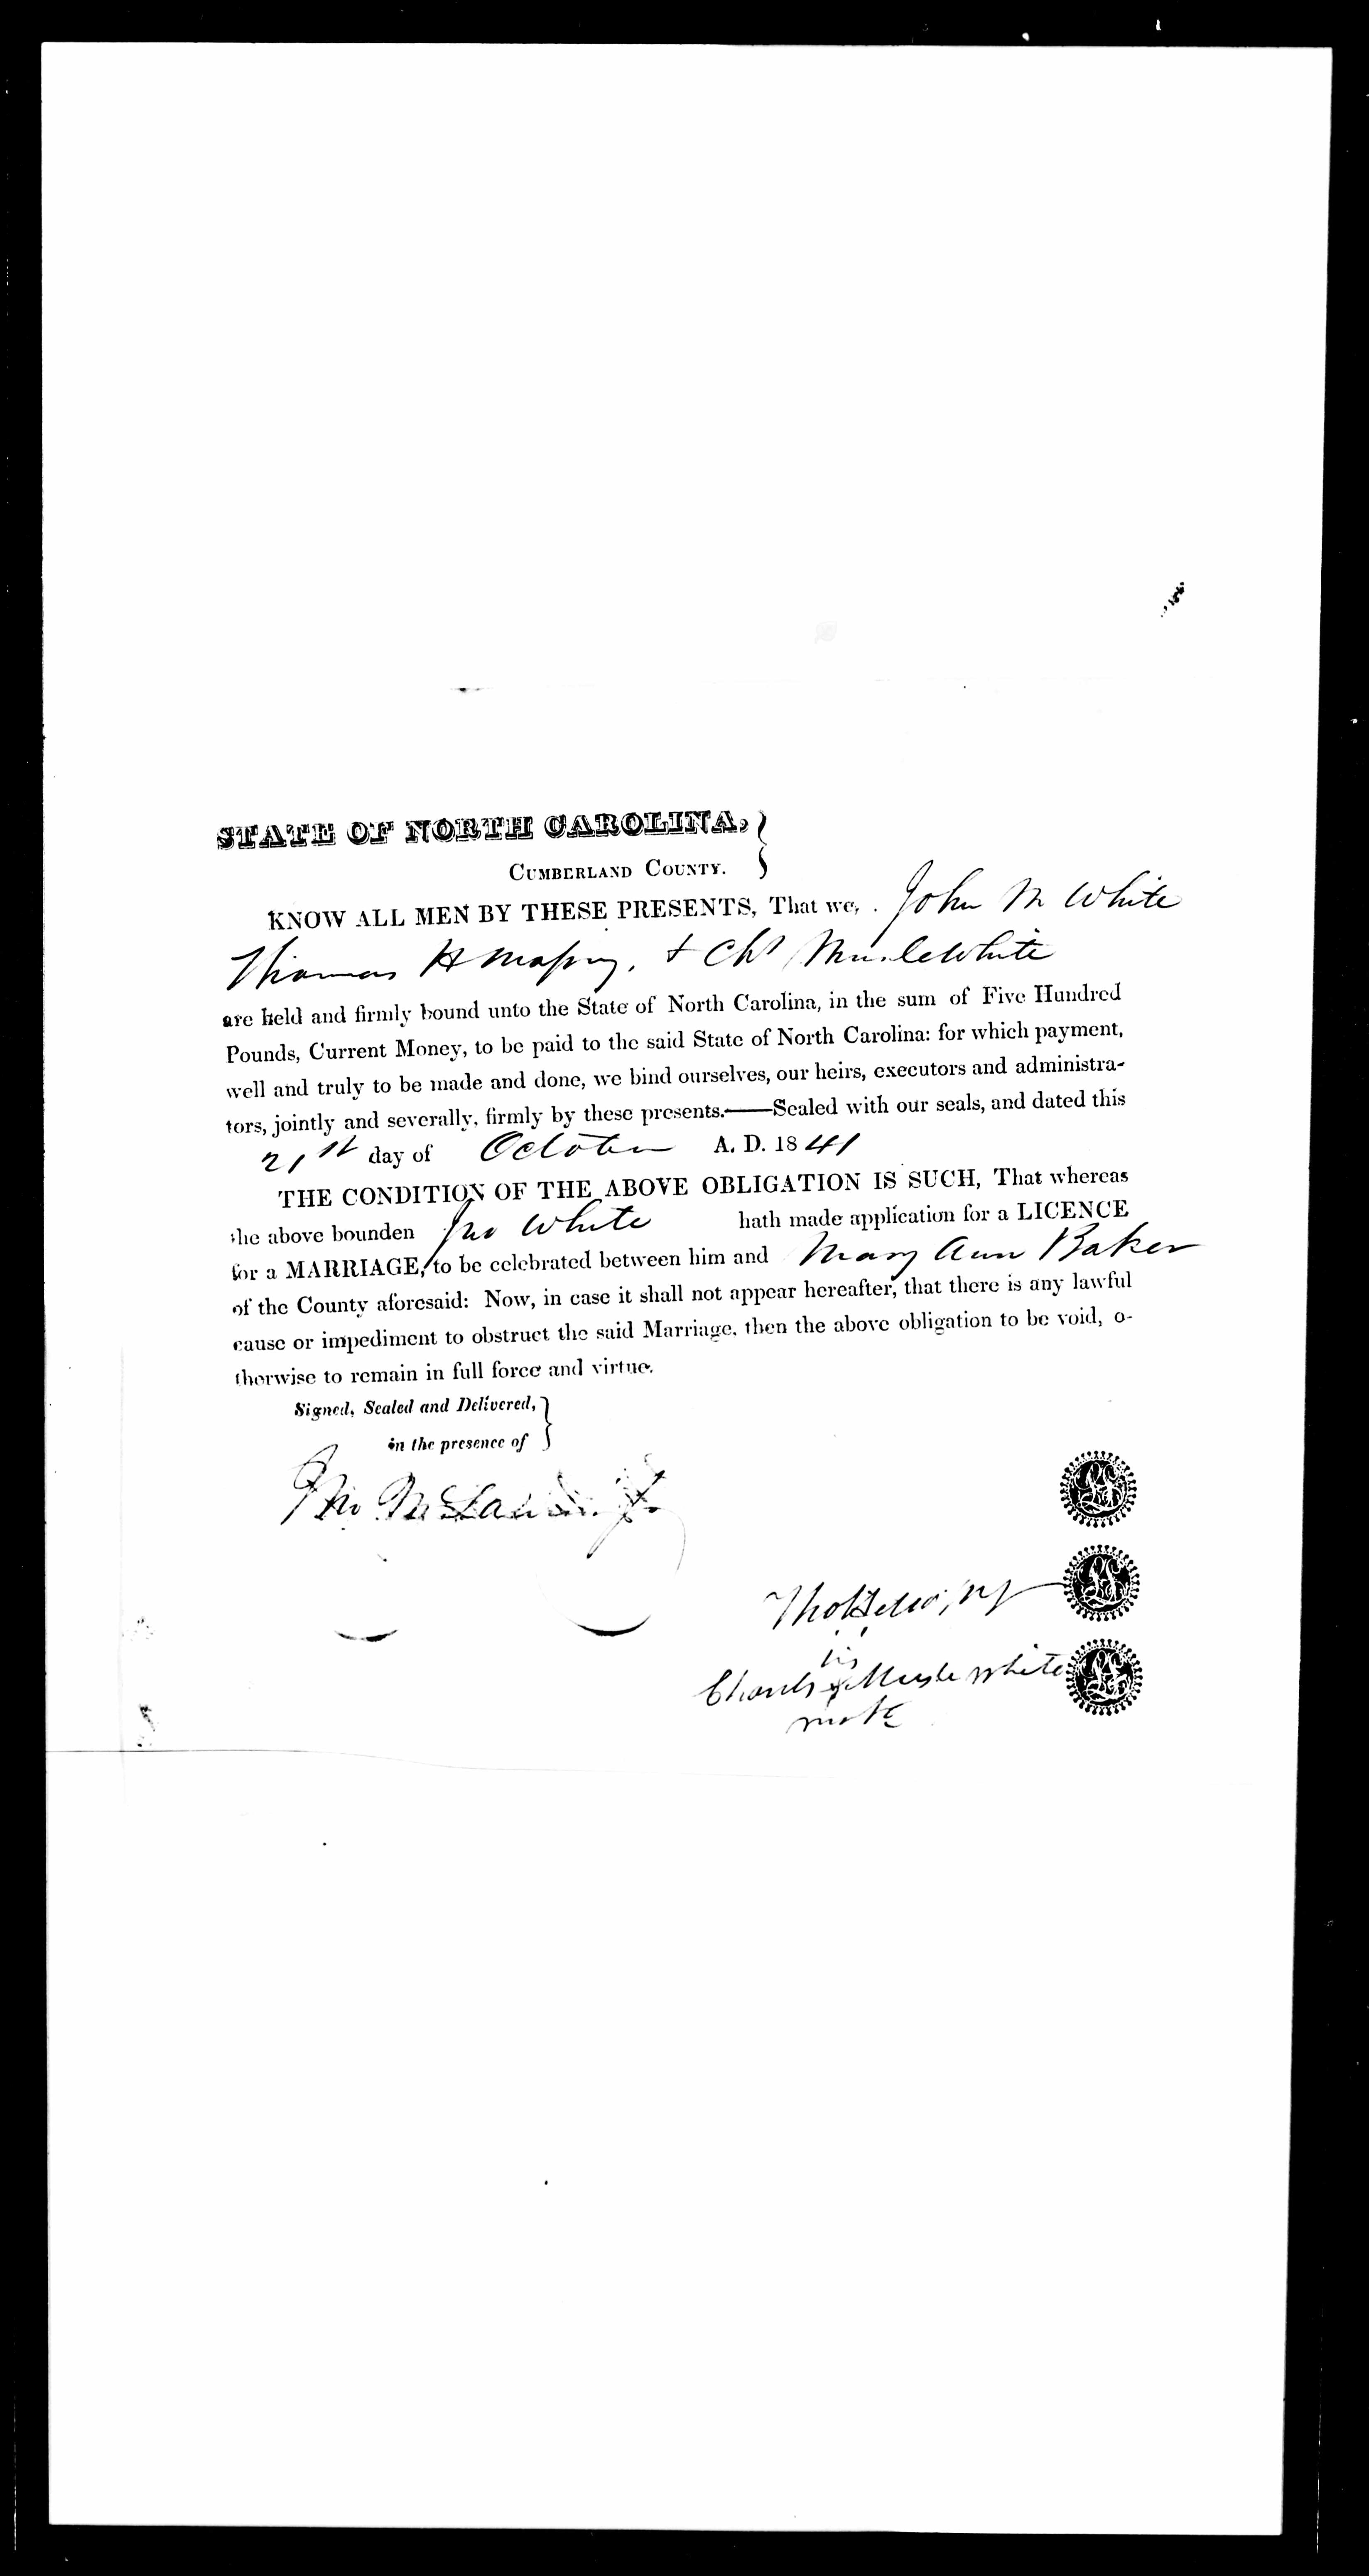 STATE OF NORTH CAROLINA,
CUMBERLAND COUNTY.
KNOW ALL MEN BY THESE PRESENTS, That we, John M White
Thomas H Massey, + Chs MusleWhite
are held and firmly bound unto the State of North Carolina, in the sum of Five Hundred
Pounds, Current Money, to be paid to the said State of North Carolina: for which payment,
well and truly to be made and done, we bind ourselves, our heirs, executors and administra-
tors, jointly and severally, firmly by these presents.——Sealed with our seals, and dated this
21st day of October A. D. 1841
THE CONDITION OF THE ABOVE OBLIGATION IS SUCH, That whereas
the above bounden Jno White hath made application for a LICENCE
for a MARRIAGE, to be celebrated between him and Mary Ann Baker
of the County aforesaid: Now, in case it shall not appear hereafter, that there is any lawful
cause or impediment to obstruct the said Marriage, then the above obligation to be void, o-
therwise to remain in full force and virtue.
Signed, Sealed and Delivered,
in the presence of
Jno
Tho
his
Charls x Musle white
mark